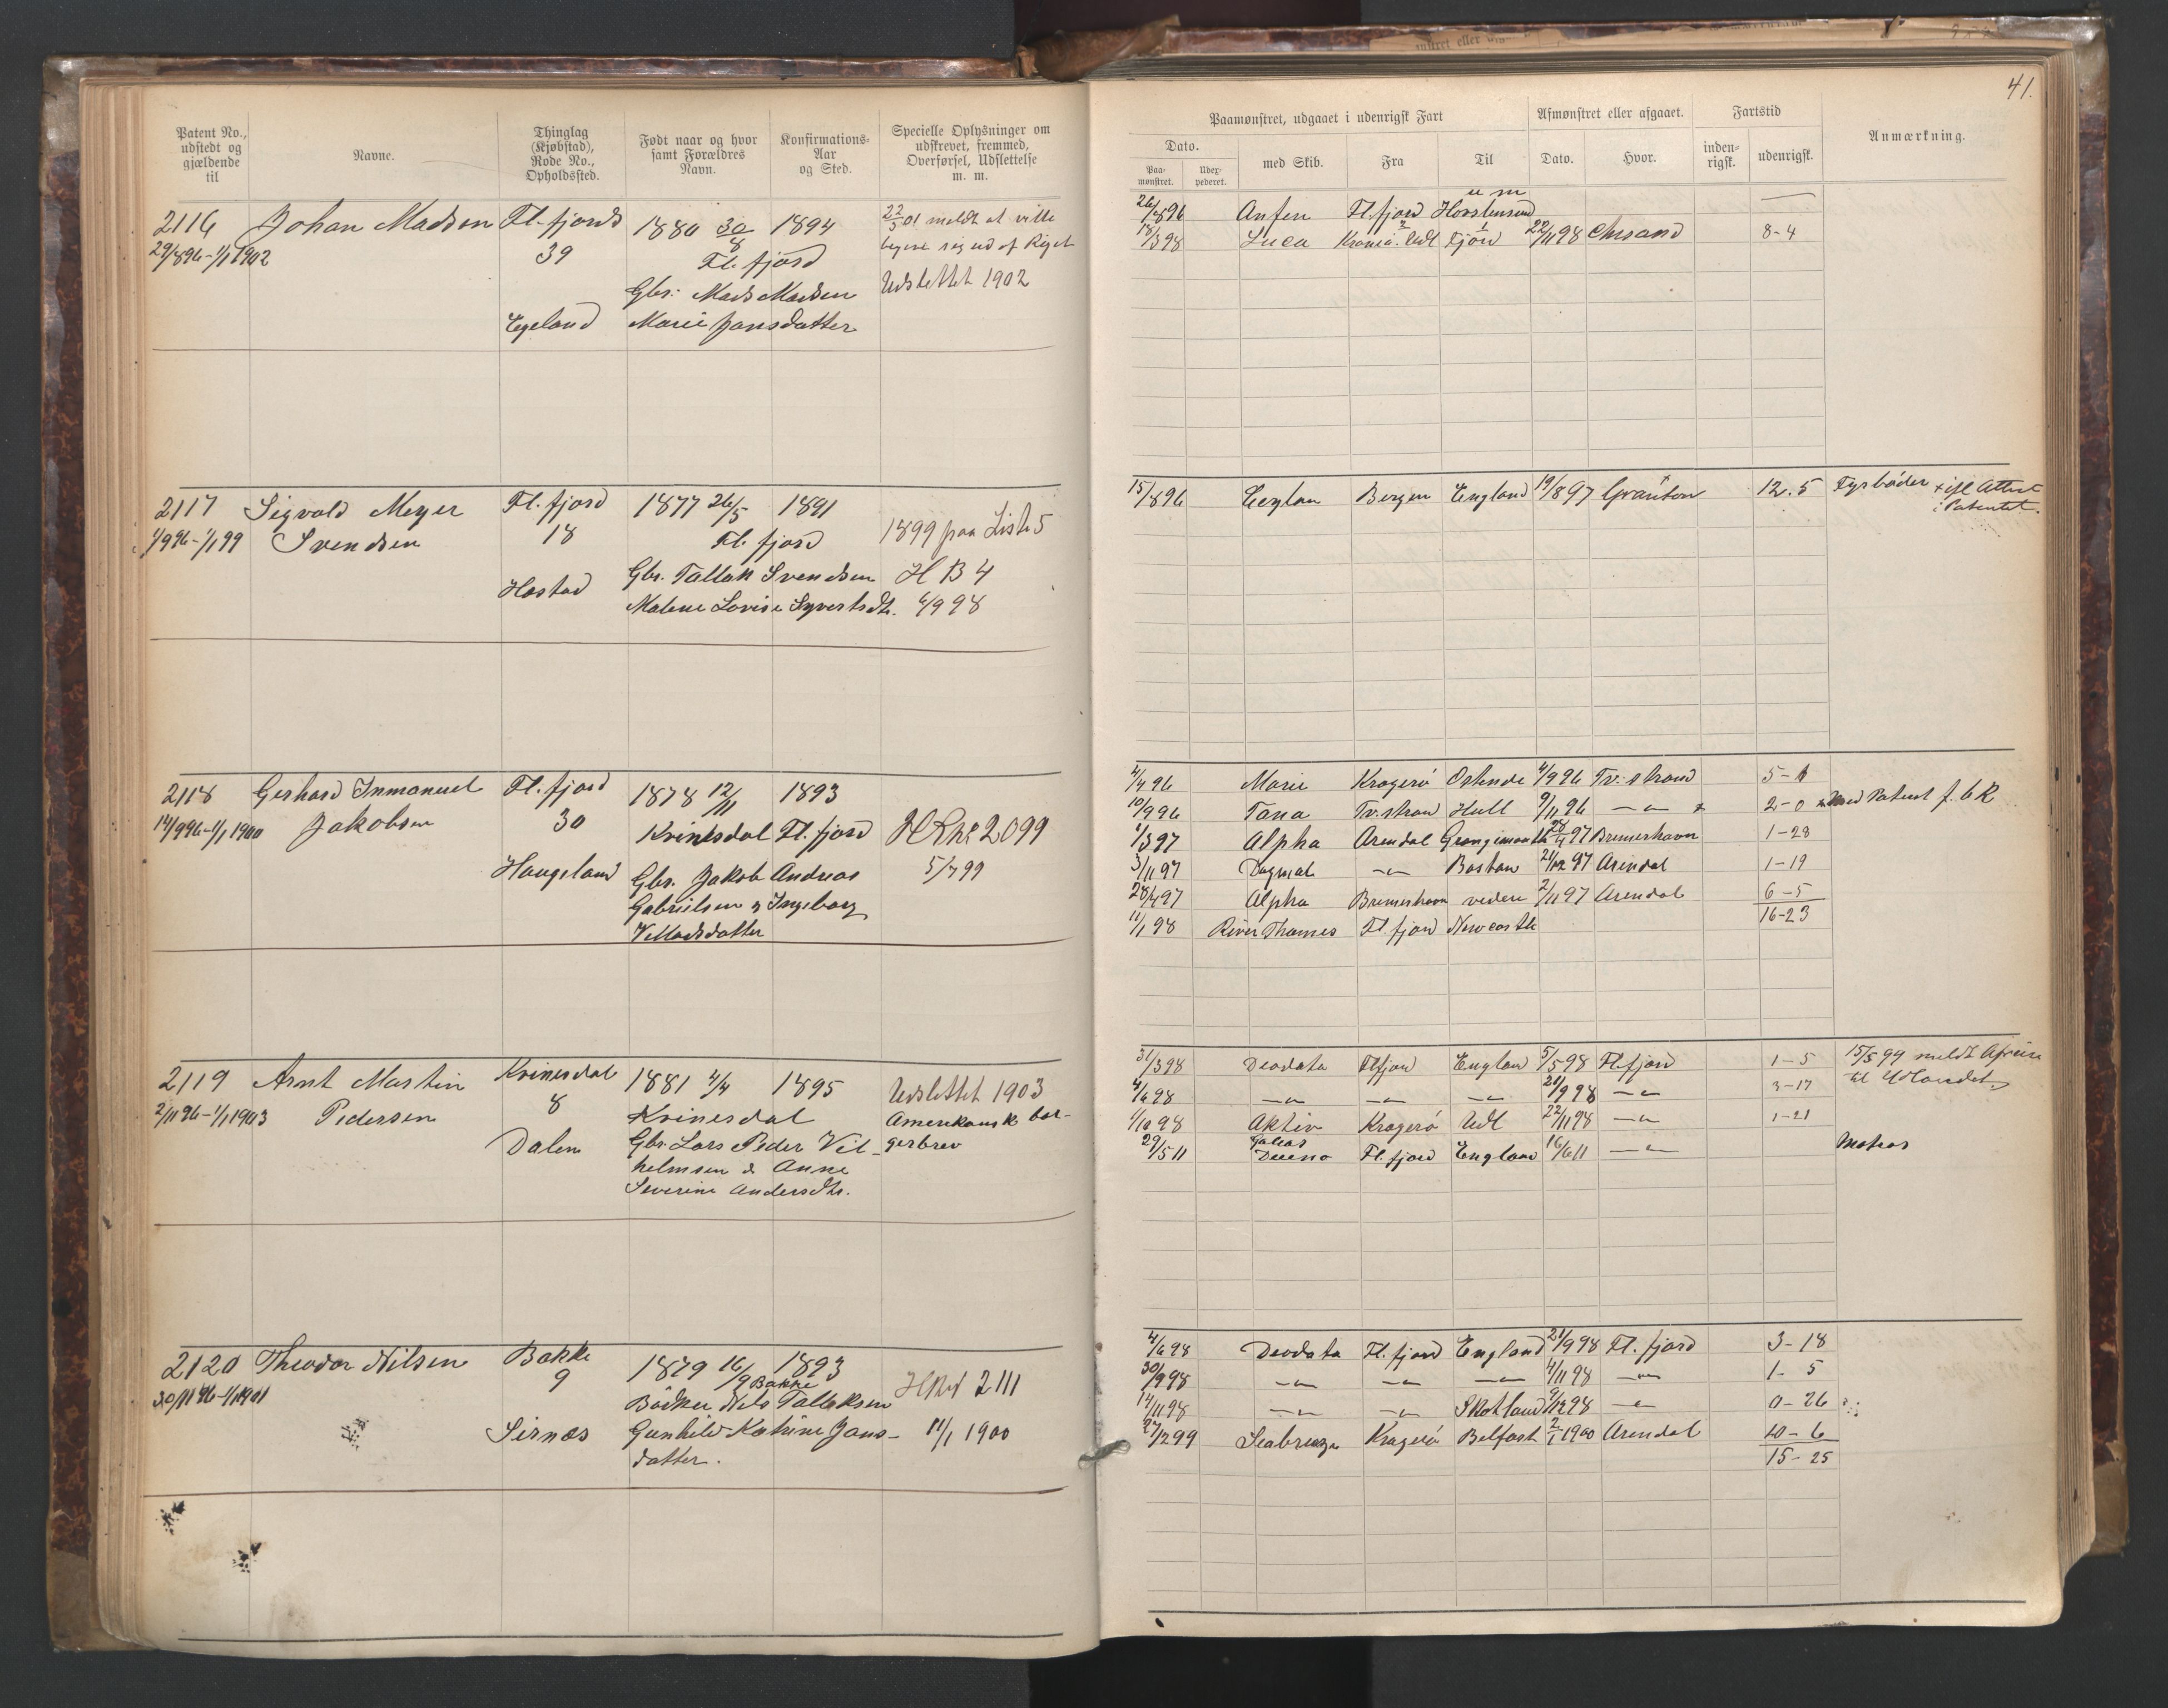 41.
Patent No., udstedt og gjældende til
Navne.
Thinglag (Kjøbstad), Rode No., Opholdssted.
Født naar og hvor samt Forældres Navn.
Konfirmations-Aar og Sted.
Specielle Oplysninger om udskrevet, fremmed, Overførsel, Udslettelse m. m.
Paamønstret, udgaaet i udenrigsk Fart
Afmønstret eller afgaaet.
Fartstid
Anmærkning.
Dato.
Paa-mønstret.
Udex-pederet.
med Skib.
Fra
Til
Dato.
Hvor.
inden-rigsk.
udenrigsk.
2116 Johan Madsen Fl. fjord 1880 30/8 1894 22/5 01 meldt at ville
29/8 96-1/1 1902 39 Fl. fjord begive sig ud af Riget
Gbr: Mads Madsen Udslettet 1902
Egeland Marie Jansdatter
26/8 96 Fl. fjord
18/3 98 Luca Udl 22/11 98 Chrsand 8-4
2117 Sigvald Meyer Fl. fjord 1877 26/5 1891
1/9 96-1/1 99 Svendsen 18 Fl. fjord 1899 paa Liste 5
Gbr. Tallak Svendsen H B 4
Hastad Malene Lovise Syvertsdtr. 6/9 98
15/8 96 Ceylon Bergen England 19/8 97 Granton 12.5 Fyrbøder x ifl Attest
i Patentet.
2118 Gerhard Immanuel Fl. fjord 1878 12/11 1893
14/9 96-1/1 1900 Jakobsen 30 Kvinesdal Fl. fjord 2099
Haugeland Gbr. Jakob Andreas 5/7 99
Gabrielsen og Ingeborg
Villadsdatter
4/4 96 Marie Kragerø Ostende 4/9 96 Tv: strand 5-1
10/9 96 Tana Tv. strand Hull 9/11 96 — " — x 2-0 x Med Patent f. 6 K
1/3 97 Alpha Arendal 28/4 97 Bremerhavn 1-28
3/11 97 Dagmar — " — Boston 21/12 97 Arendal 1-19
28/4 97 Alpha Bremerhavn videre 2/11 97 Arendal 6-5
16-23
11/1 98 River Thames Fl. fjord Newcastle
2119 Arnt Martin Kvinesdal 1881 4/4 1895 Udslettet 1903
2/11 96-1/1 1903 Pedersen 8 Kvinesdal Amerikansk bor-
Dalen Gbr. Lars Peder Vil- gerbrev
helmsen & Anne
Severine Andersdtr.
31/3 98 Deodata Fl fjord England 5/5 98 Fl. fjord 1-5 15/5 99 meldt Afreise
til Udlandet
4/6 98 — " — — " — — " — 21/9 98 — " — 3-17
1/10 98 Aktiv Kragerø Udl 22/11 98 — " — 1-21
29/5 11 Galeas Fl. fjord England 16/6 11 — " — Matros
2120 Theodor Nilsen Bakke 1879 16/9 1893
30/11 96-1/1 1901 9 Bakke
Bødker Nils Tallaksen 2111
Sirnes Gunhild Katrine Jans- 11/1 1900
datter.
4/6 98 Deodata Fl. fjord England 21/9 98 Fl. fjord 3-18
30/9 98 — " — — " — — " — 4/11 98 — " — 1-5
14/11 98 — " — — " — Skotland 9/12 98 — " — 0-26
27/2 99 Seabreeze Kragerø Belfast 2/1 1900 Arendal 10-6
15-25